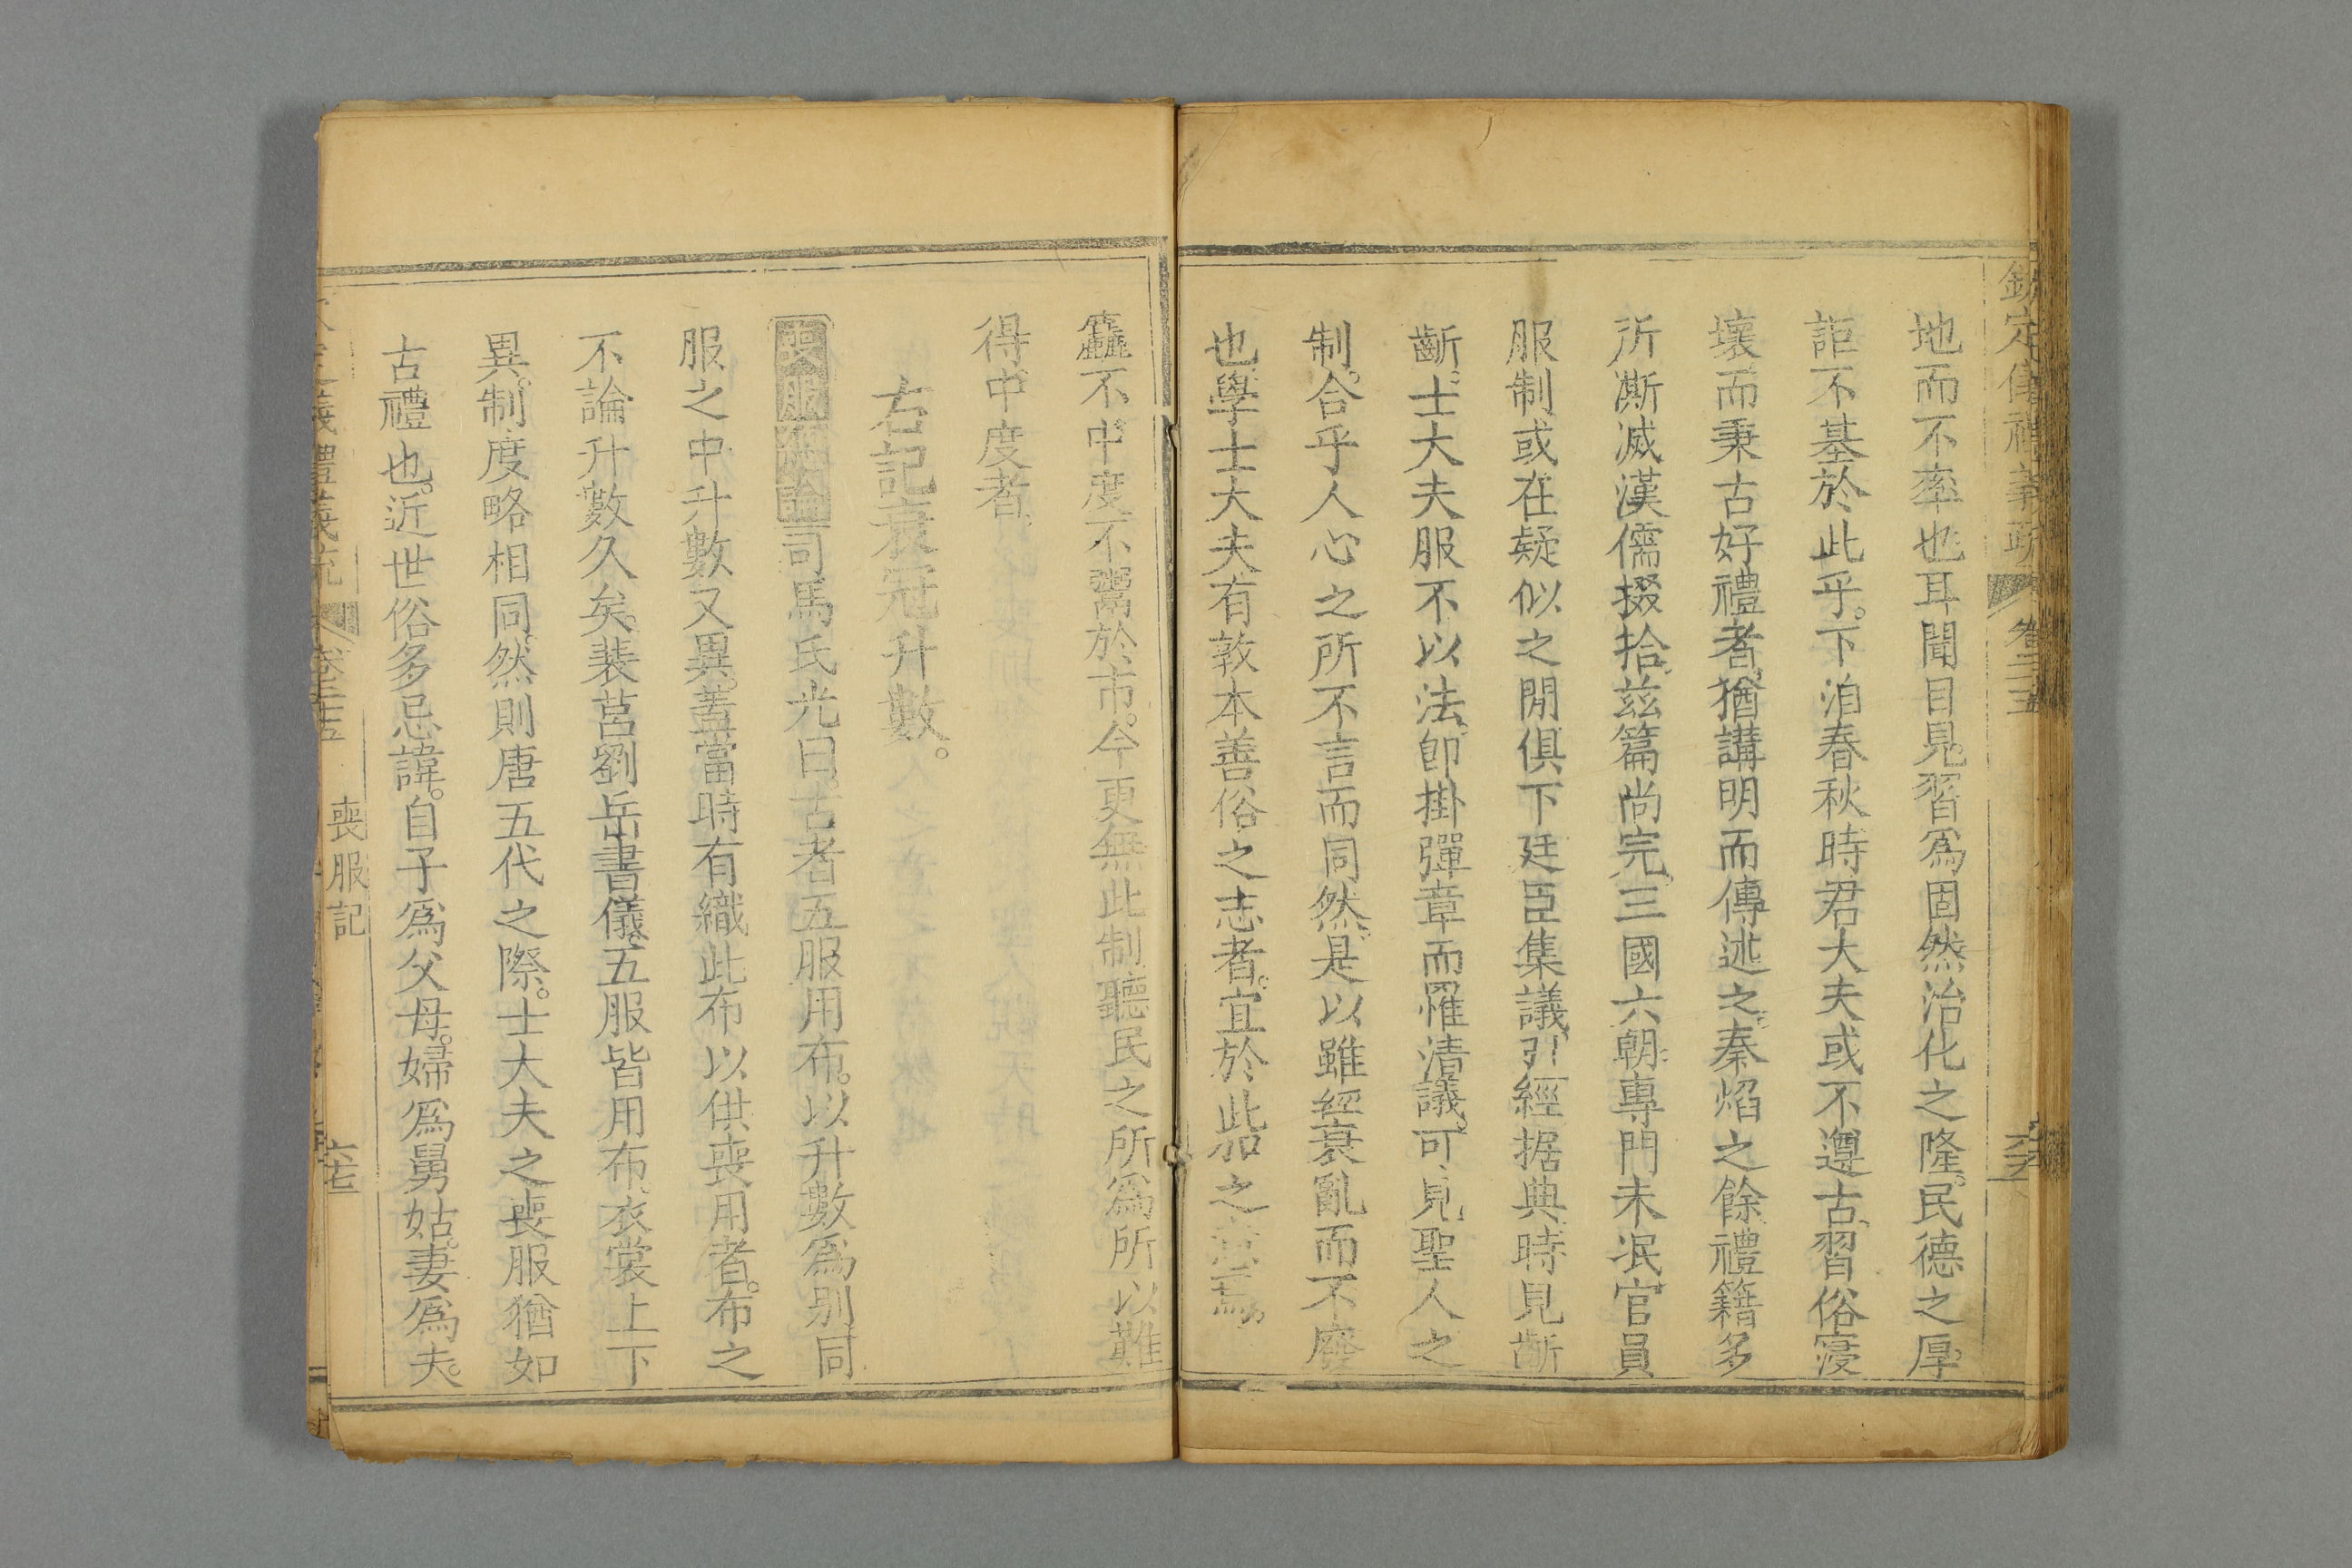 欽定儀禮義疏 卷二十五
地而不率也耳聞目見習爲固然治化之隆民德之厚
詎不基於此乎下洎春秋時君大夫或不遵古習俗寖
壞而秉古好禮者猶講明而傳述之秦焰之餘禮籍多
所澌滅漢儒掇拾兹篇尚完三國六朝專門未泯官員
服制或在疑似之閒俱下廷臣集議引經据典時見斷
斷士大夫服不以法卽掛彈章而罹清議可見聖人之
制合乎人心之所不言而同然是以雖經衰亂而不廢
也學士大夫有敦本善俗之志者宜於此加之意焉
麤不中度不鬻於市今更無此制聽民之所爲所以難
得中度者
右記衰冠升數
喪服總論司馬氏光曰古者五服用布以升數爲别同
服之中升數又異蓋當時有織此布以供喪用者布之
不論升數久矣裴莒劉岳書儀五服皆用布衣裳上下
異制度略相同然則唐五代之際士大夫之喪服猶如
古禮也近世俗多忌諱自子爲父母婦爲舅姑妻爲夫
義禮義疏 卷二十五 喪服記